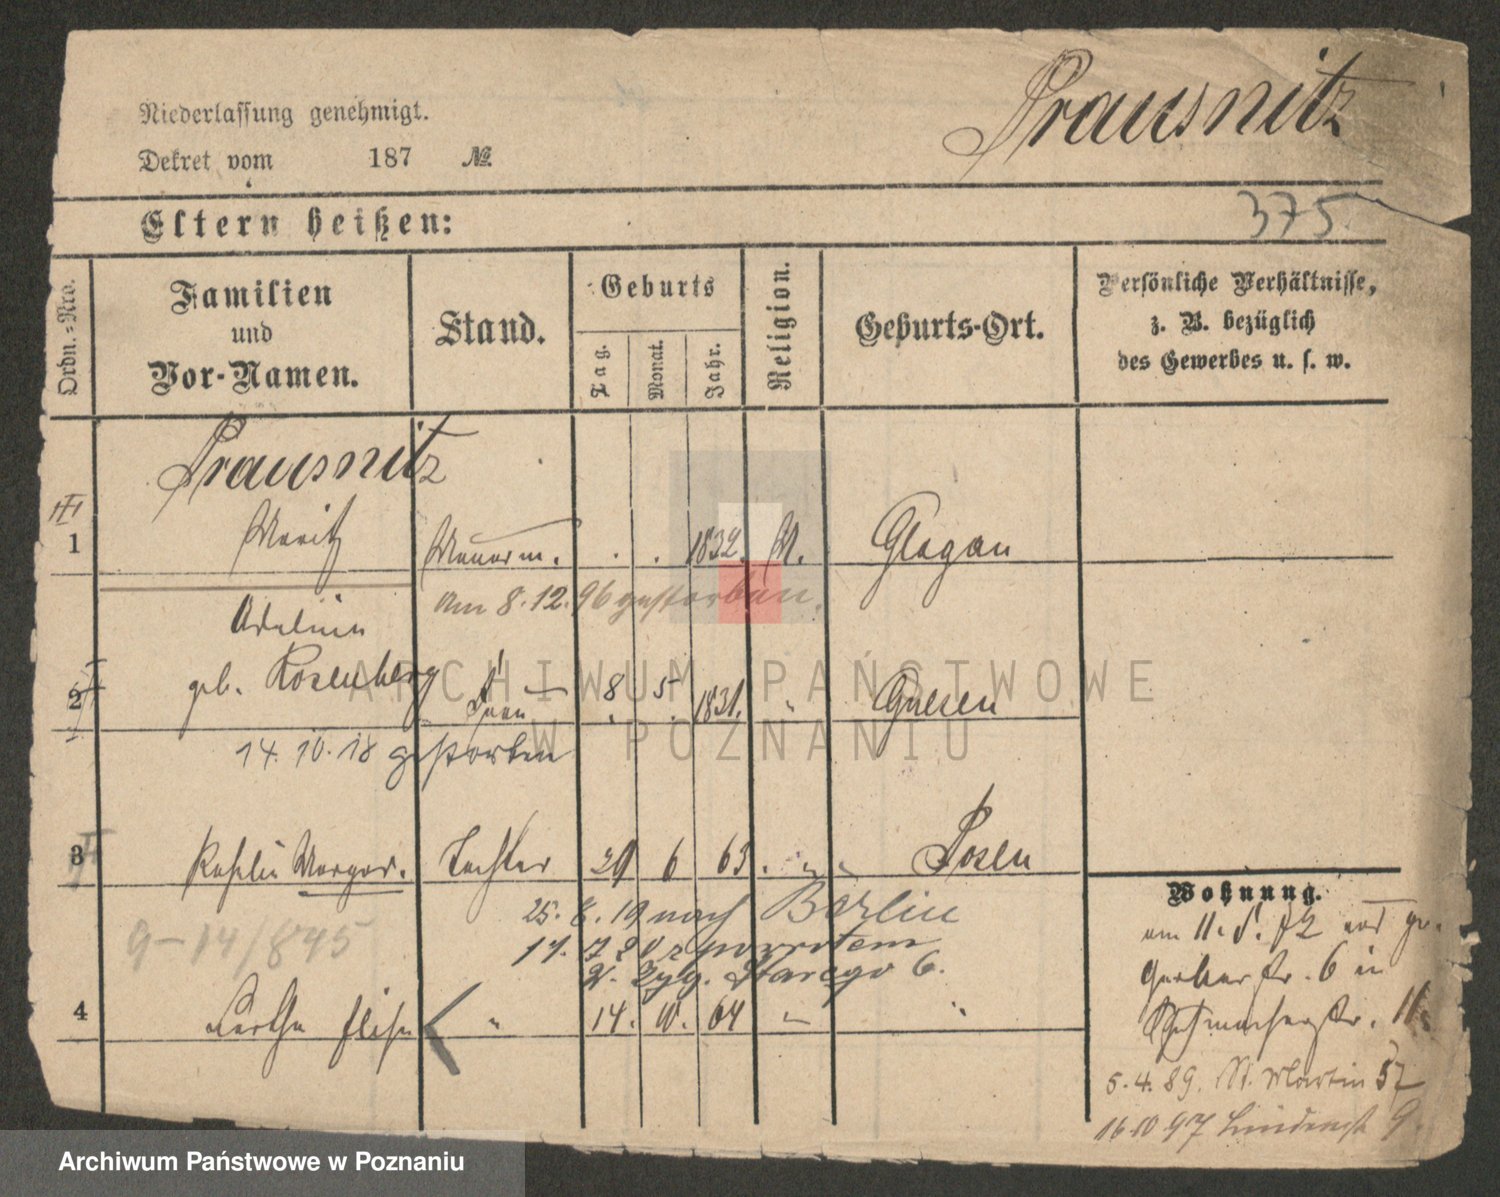 Prausnitz
Niederlassung genehmigt.
Dekret vom 187 №
Eltern heißen:
375.
Ordn.-Nro.
Familien
und
Vor-Namen.
Stand.
Geburts
Tag.
Monat.
Jahr.
Religion.
Geburts-Ort.
Persönliche Verhältnisse,
z. B. bezüglich
des Gewerbes u. s. w.
Prausnitz
1 Moritz 1832. M. Glogau
am 8.12.96 gestorben.
Adeline
2 geb. Rosenberg Frau 8. 5. 1831. " Gnesen
14.10.18 gestorben
3 Rosalie Margar. Tochter 29 6 63. " Posen
25.8.19 nach Berlin
9-14/845
4 Bertha Elise " 14. 10. 64 " "
Wohnung.
am 11. 72 von gr.
Gerberstr. 6 in
Schumacherstr. 11.
5.4.89. St. Martin 57
16.10.97 Lindenst 9.
ARCHIWUM PAŃSTWOWE
W POZNANIU
Archiwum Państwowe w Poznaniu